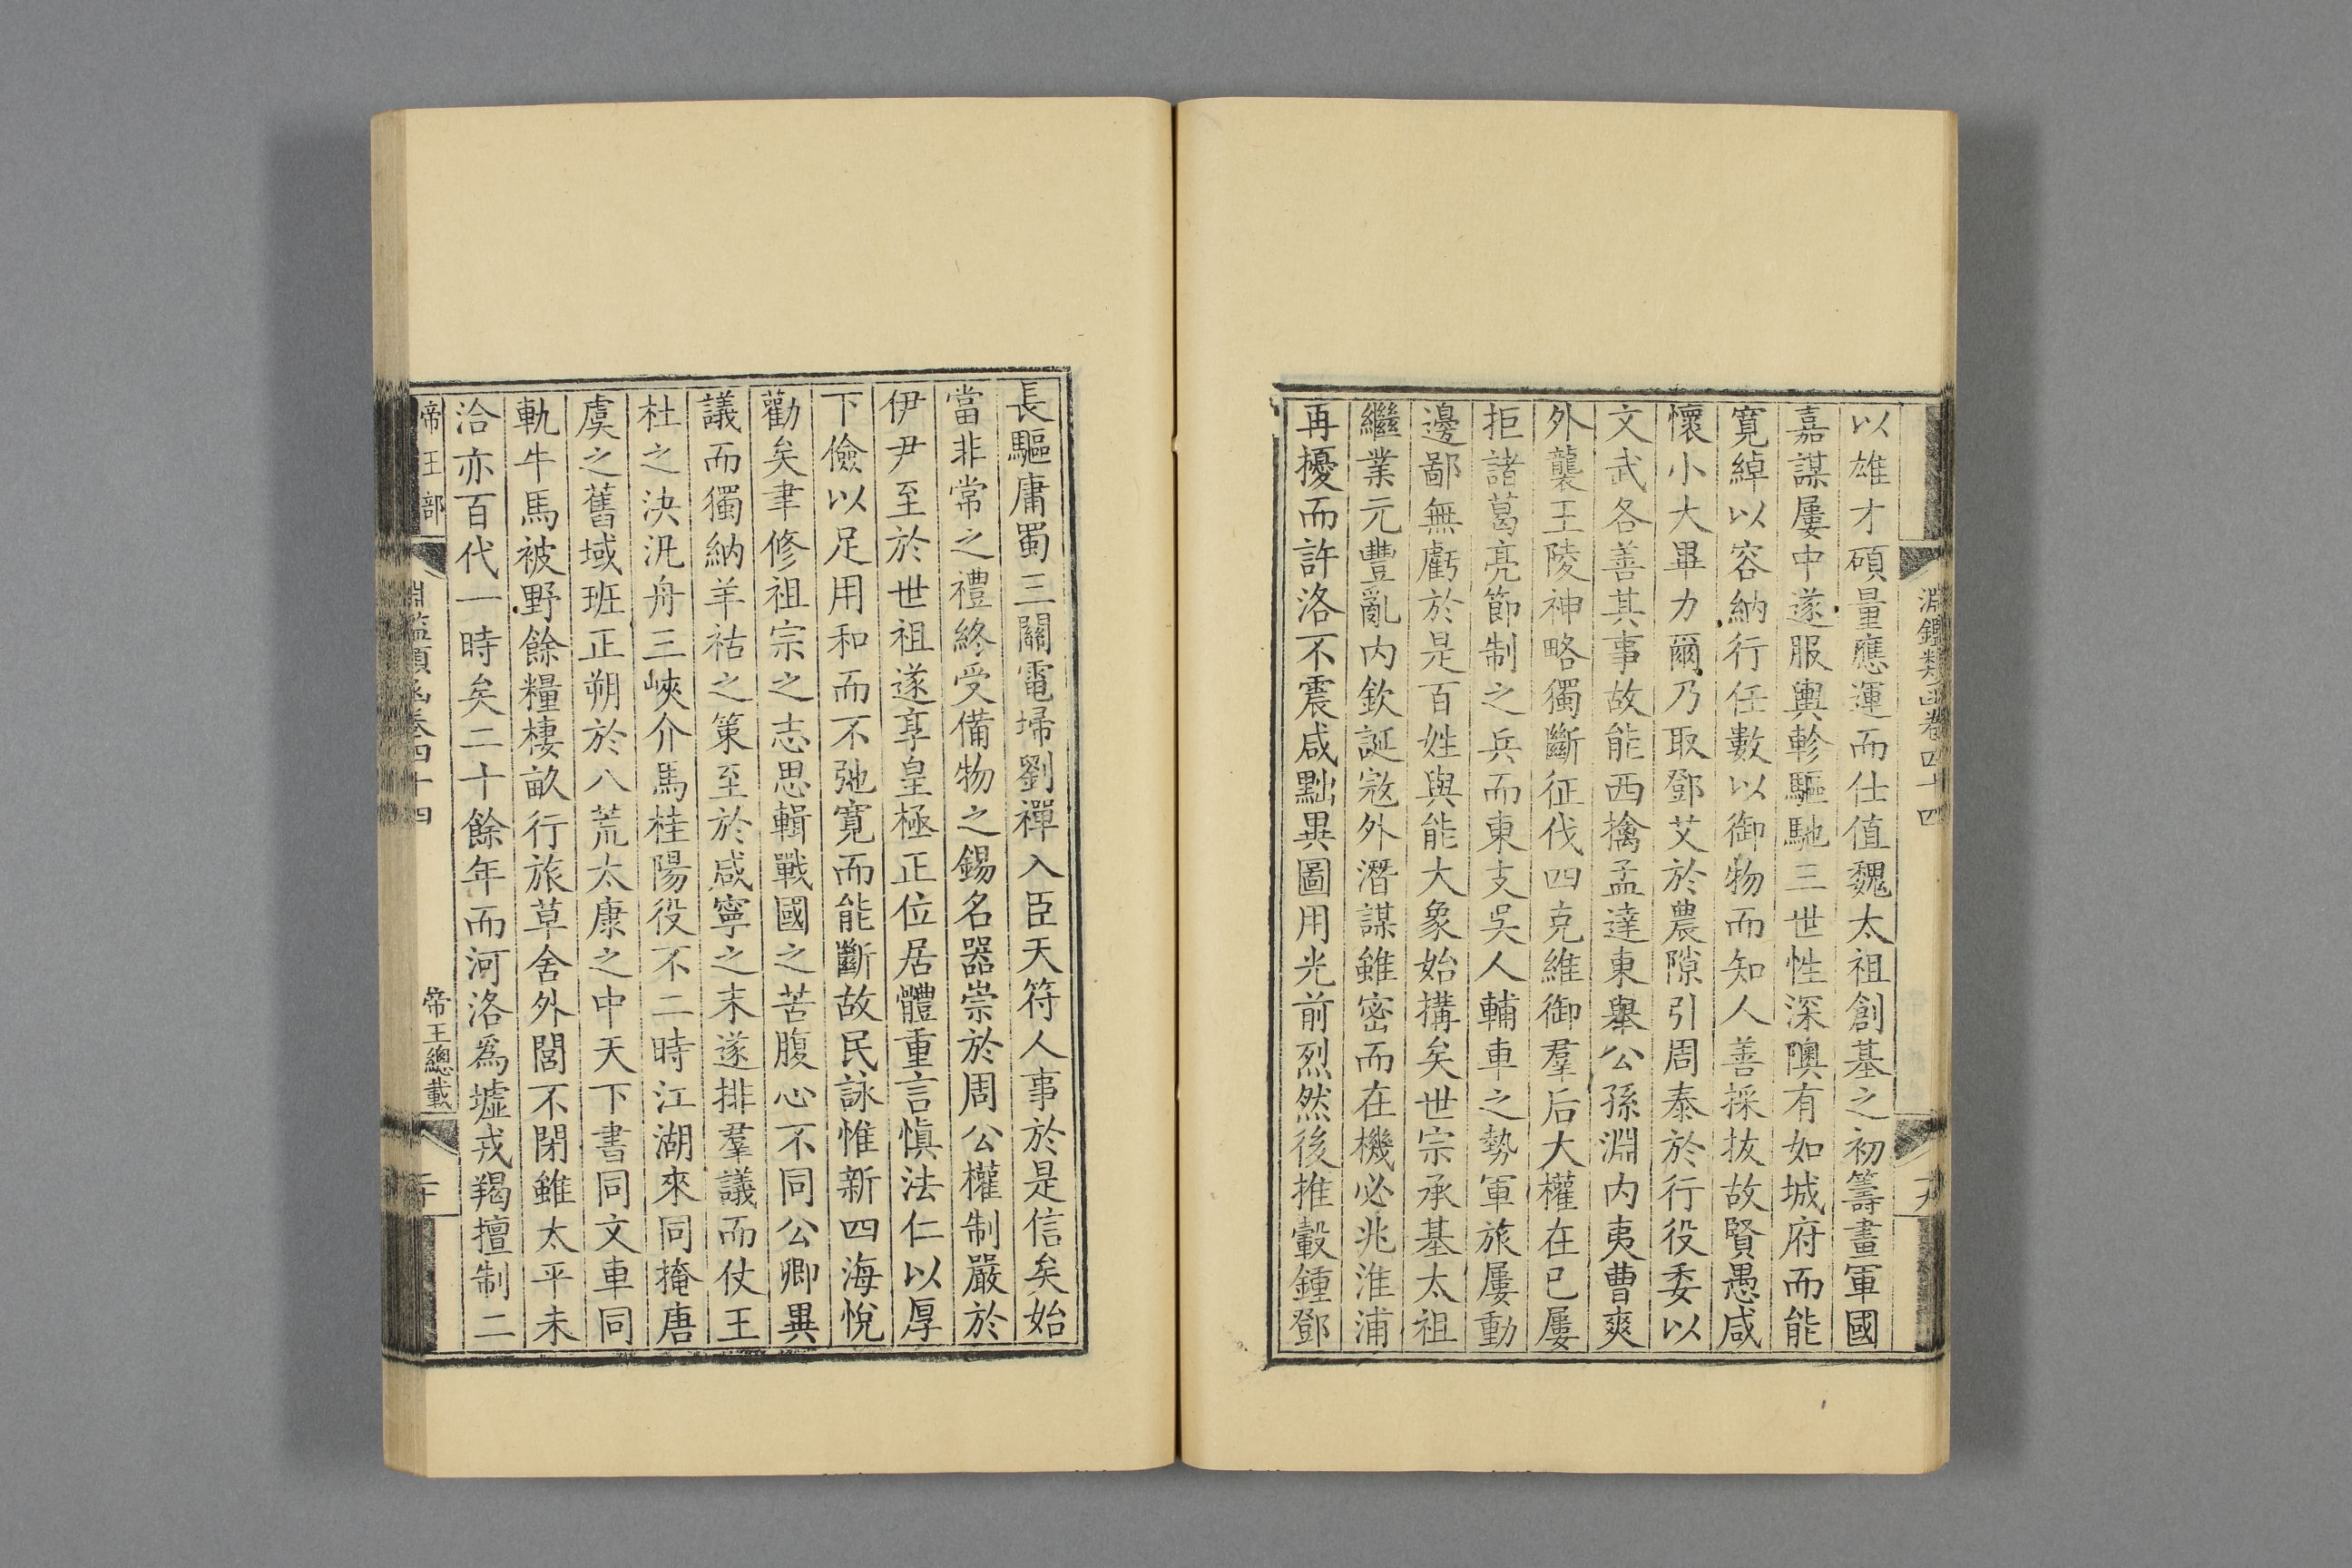 淵鑑類函卷四十四
十九
以雄才碩量應運而仕值魏太祖創基之初籌畫軍國
嘉謀屢中遂服輿軫驅馳三世性深隩有如城府而能
寬綽以容納行任數以御物而知人善採拔故賢愚咸
懷小大畢力爾乃取鄧艾於農隙引周泰於行役委以
文武各善其事故能西擒孟達東舉公孫淵內夷曹爽
外襲王陵神略獨斷征伐四克維御羣后大權在已屢
拒諸葛亮節制之兵而東支吳人輔車之勢軍旅屢動
邊鄙無虧於是百姓與能大象始搆矣世宗承基太祖
繼業元豐亂內欽誕寇外潛謀雖密而在機必兆淮浦
再擾而許洛不震咸黜異圖用光前烈然後推轂鍾鄧
長驅庸蜀三關電埽劉禪入臣天符人事於是信矣始
當非常之禮終受備物之錫名器崇於周公權制嚴於
伊尹至於世祖遂享皇極正位居體重言慎法仁以厚
下儉以足用和而不弛寬而能斷故民詠惟新四海悅
勸矣聿修祖宗之志思輯戰國之苦腹心不同公卿異
議而獨納羊祜之策至於咸寧之末遂排羣議而仗王
杜之決汎舟三峽介馬桂陽役不二時江湖來同掩唐
虞之舊域班正朔於八荒太康之中天下書同文車同
軌牛馬被野餘糧棲畝行旅草舍外閭不閉雖太平未
洽亦百代一時矣二十餘年而河洛為墟戎羯擅制二
帝王部
淵鑑類函卷四十四
帝王總載
二十